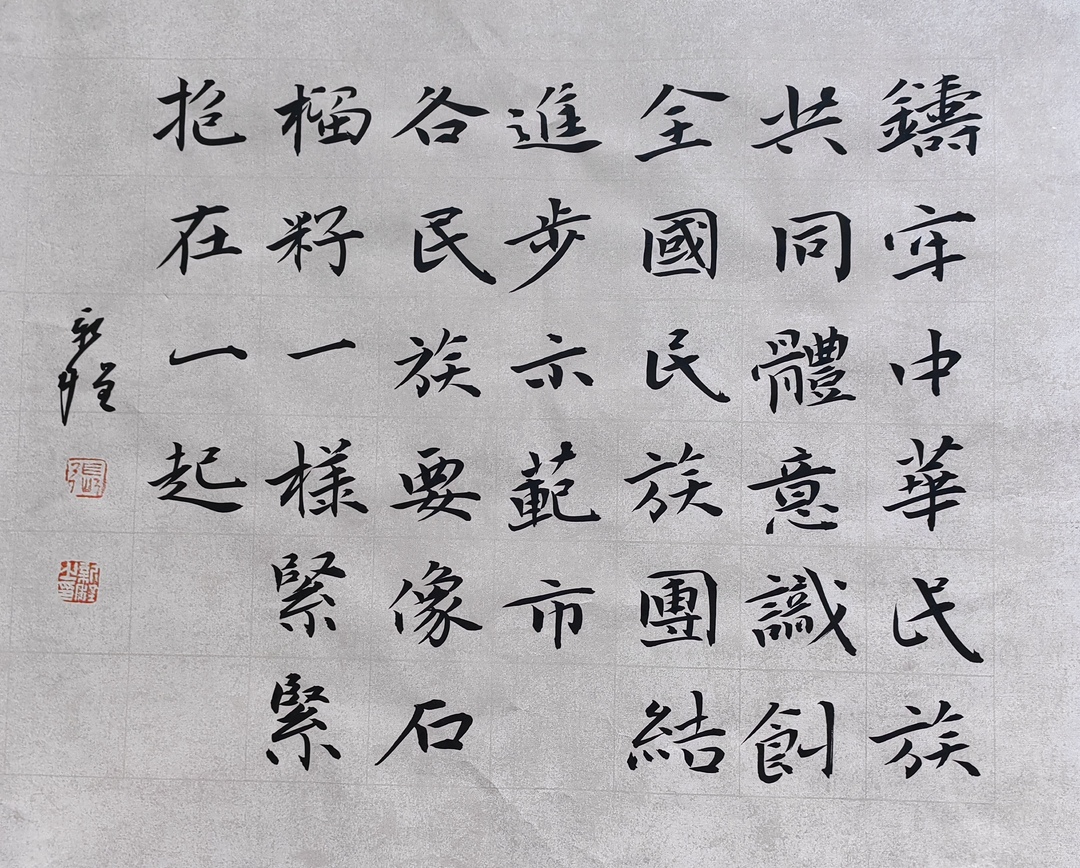 鑄牢中華民族
共同體意識創
全國民族團結
進步示範市
各民族要像石
榴籽一樣緊緊
抱在一起
張